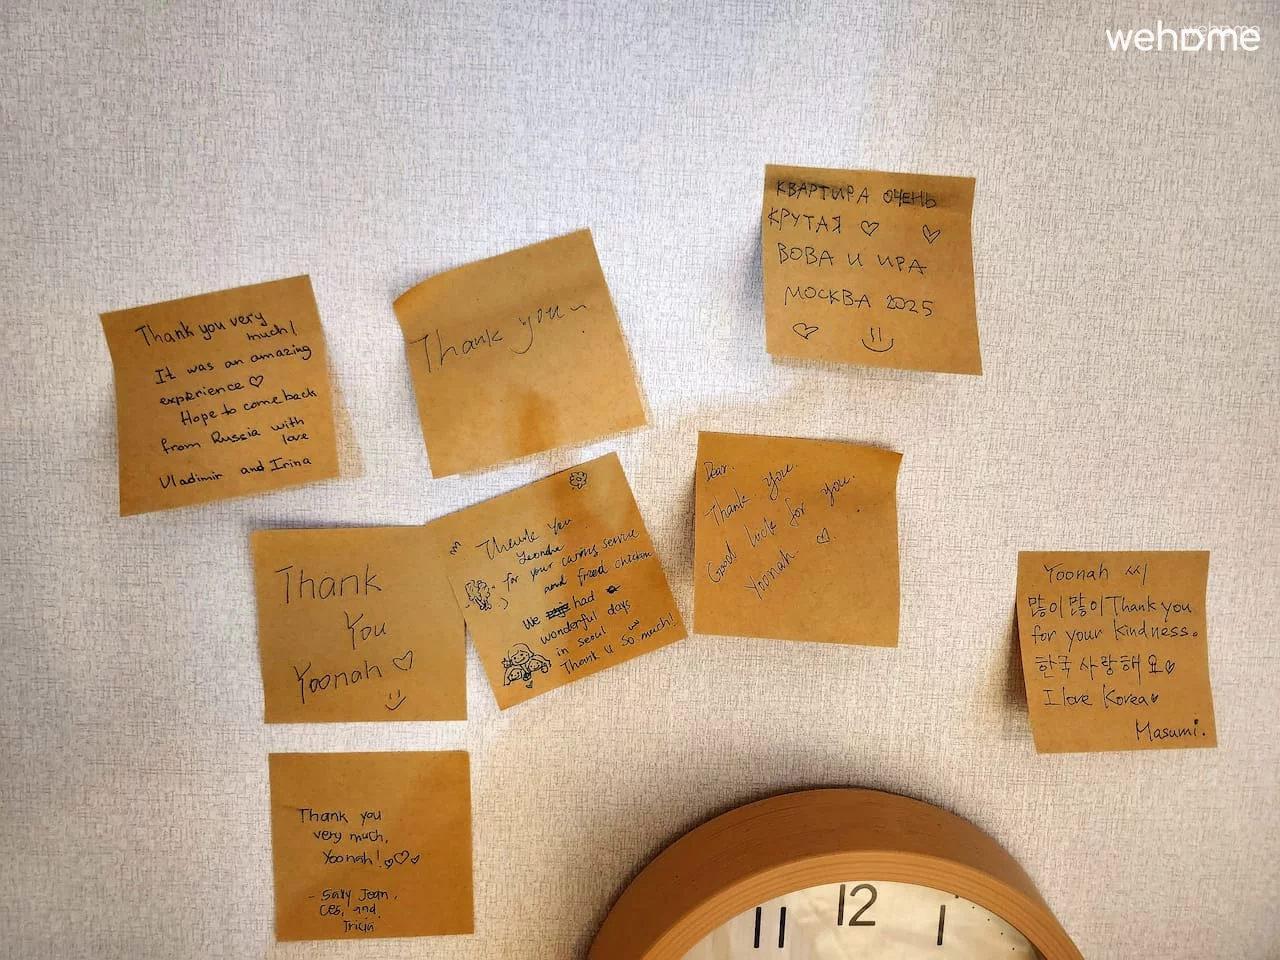 wehome
КВАРТИРА ОЧЕНЬ
КРУТАЯ
ВОВА И ИРА
МОСКВА 2025
Thank you~
Thank you very
much!
It was an amazing
experience
Hope to come back
from Russia with
love
Vladimir and Irina
Dear.
Thank you.
Good luck for you.
Yoonah
Thank You
for your caring service
and fried chicken
We had
wonderful days
in seoul
Thank u so much!
Thank
You
Yoonah
Yoonah 씨
많이많이 Thank you
for your kindness.
한국 사랑해요
I love Korea
Masumi.
Thank you
very much,
Yoonah!
- Sally Jean,
Ces, and
Tricia
11
12
1